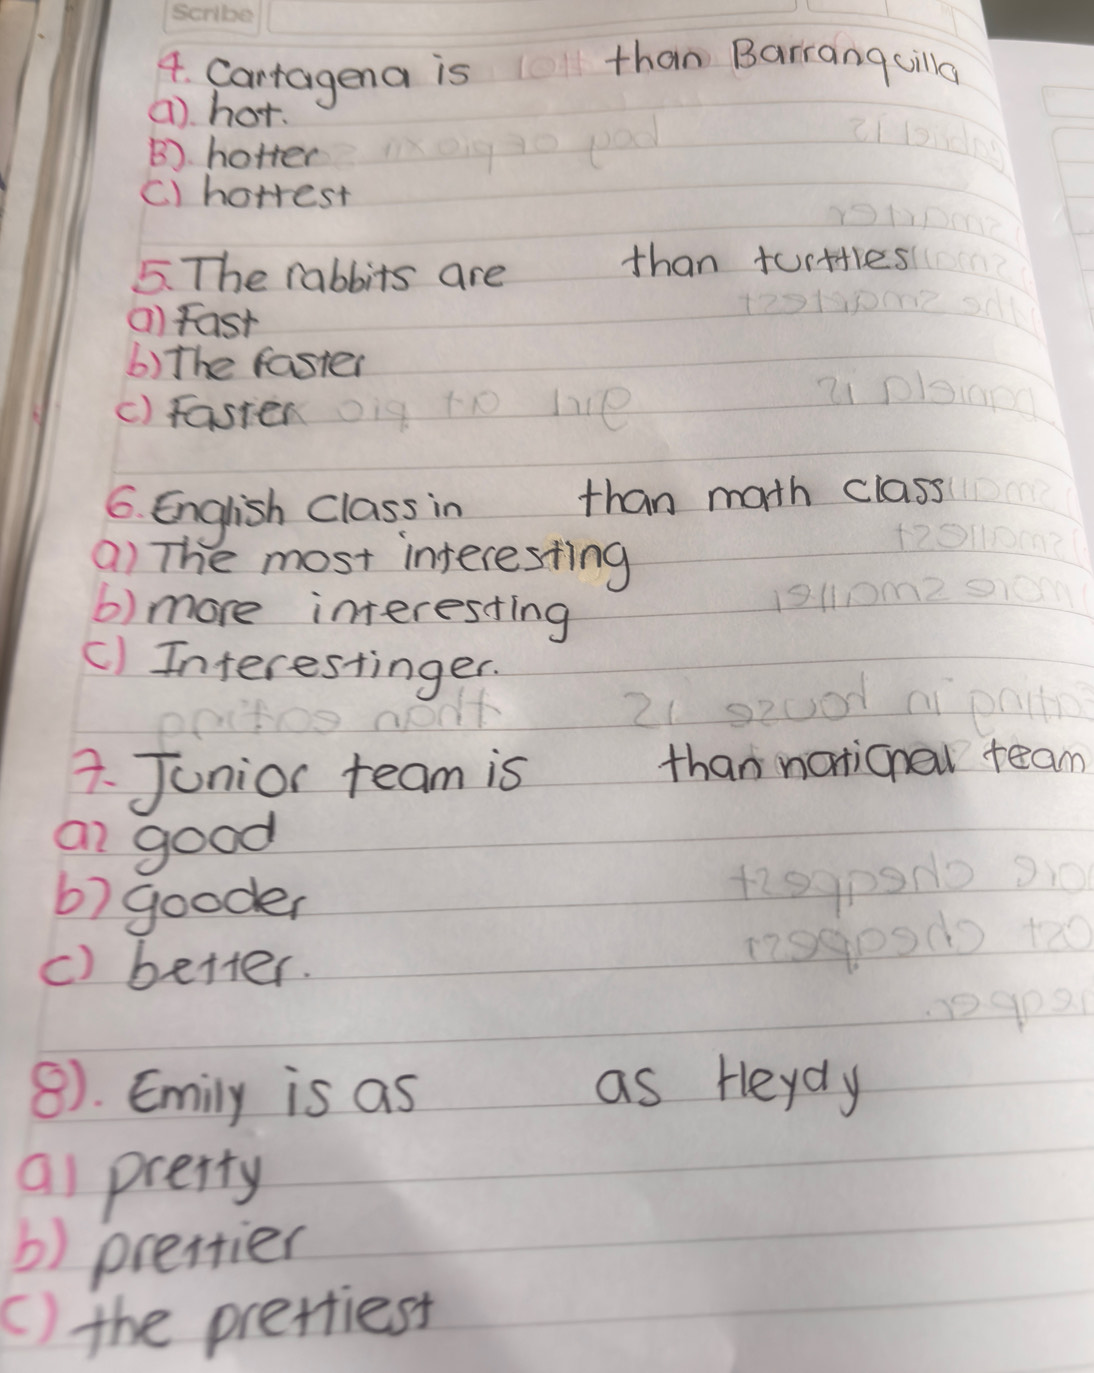 Scribe
4. Cartagena is than Barranquilla
a). hot.
B). hotter
C) hottest
5. The rabbits are than turttles
a) Fast
b) The faster
c) Faster
6. English Class in than math class
a) The most interesting
b) more interesting
c) Interestinger.
7. Junior team is than national team
a) good
b) gooder
c) better.
8). Emily is as as Heydy
a) pretty
b) prettier
c) the prettiest